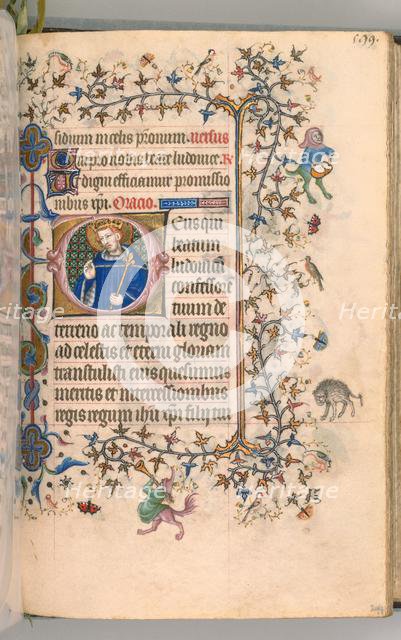 599.
sidium in celis pronum. Versus
Ora pro nobis beate ludovice. R
Ut digni efficiamur promissio
nibus xpi. Oracio.
Deus qui
beatum
ludovicū
confessorē
tuum de
terreno ac temporali regno
ad celestis et eterni gloriam
transtulisti eius quesumus
meritis et intercessionibus
regis regum ihu xpi filij tui
Heritage
Heritage
Heritage
Heritage
Heritage